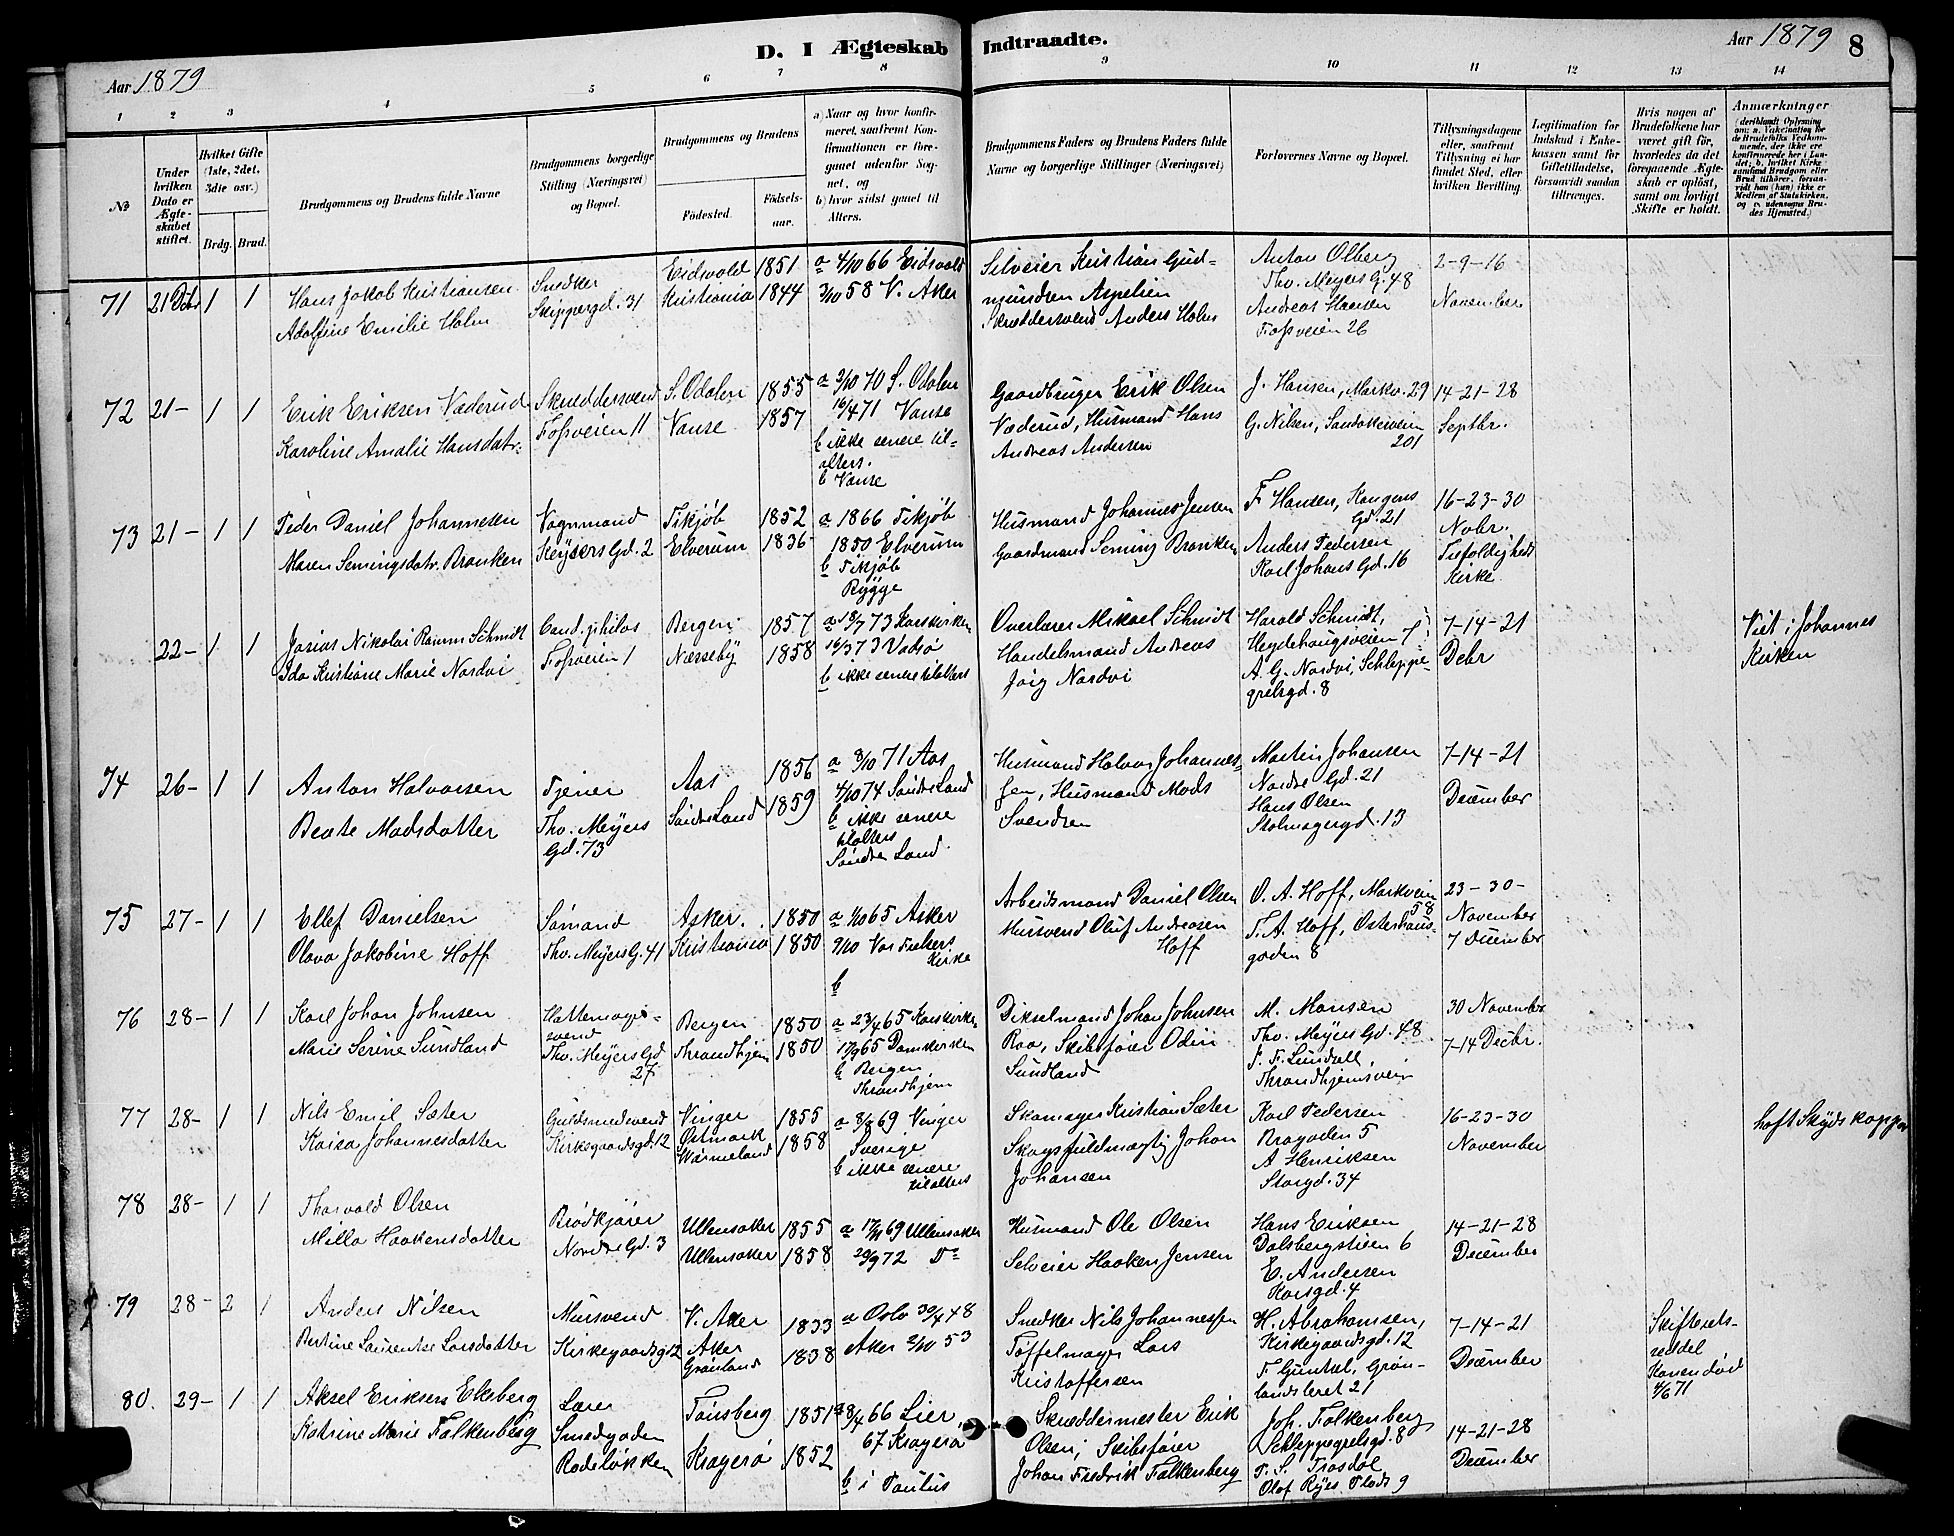 D. I Ægteskab Indtraadte.
Aar 1879
Aar 1879 8
1 2 3 4 5 6 7 8 9 10 11 12 13 14
№
Under hvilken Dato er Ægteskabet stiftet.
Hvilket Gifte (1ste, 2det, 3die osv.)
Brdg. Brud.
Brudgommens og Brudens fulde Navne
Brudgommens borgerlige Stilling (Næringsvei) og Bopæl.
Brudgommens og Brudens
Fødested. Fødselsaar.
a) Naar og hvor konfirmeret, saafremt Konfirmationen er foregaaet udenfor Sognet, og
b) hvor sidst gaaet til Alters.
Brudgommens Faders og Brudens Faders fulde Navne og borgerlige Stillinger (Næringsvei)
Forlovernes Navne og Bopæl.
Tillysningsdagene eller, saafremt Tillysning ei har fundet Sted, efter hvilken Bevilling.
Legitimation for Indskud i Enkekassen samt for Giftetilladelse, forsaavidt saadan tiltrænges.
Hvis nogen af Brudefolkene har været gift før, hvorledes da det foregaaende Ægteskab er opløst, samt om lovligt Skifte er holdt.
Anmærkninger
71 21 Dcbr 1 1
Hans Jakob Kristiansen
Adolfine Emilie Holm
Snedker
Skippergd. 31
Eidsvold 1851
Kristiania 1844
a 4/10 66 Eidsvold
3/10 58 V. Aker
Selveier Kristian Gud-
mundsen Aspelien
Skræddersvend Anders Holm
Anton Olberg
Thv. Meyers G. 48
Andreas Hansen
Fossveien 26
2-9-16
November
72 21- 1 1
Erik Eriksen Væderud
Karoline Amalie Hansdatr.
Skræddersvend
Fossveien 11
S. Odalen 1855
Vanse 1857
a 2/10 70 S. Odalen
16/4 71 Vanse
b ikke senere til-
alters.
b Vanse
Gaardbruger Erik Olsen
Væderud, Husmand Hans
Andreas Andersen
J. Hansen, Markv. 29
G. Nilsen, Sandakerveien
201
14-21-28
Septbr.
73 21- 1 1
Peder Daniel Johannesen
Maren Semingsdatr. Branken
Vognmand
Keysers Gd. 2
Tikjøb 1852
Elverum 1836
a 1866 Tikjøb
1850 Elverum
b Tikjøb
Rygge
Husmand Johannes Jensen
Gaardmand Seming Branken
F. Hansen, Kongens
Gd. 21
Anders Pedersen
Karl Johans Gd. 16
16-23-30
Nobr.
Trefoldigheds
Kirke
22- 1 1
Josias Nikolai Schmidt
Ida Kristiane Marie Nordvi
Cand. philos
Fossveien 1
Bergen 1857
Næsseby 1858
73 Korskirken
73 Vadsø
b ikke senere tilalters
Overlærer Mikael Schmidt
Handelsmand Andreas
Nordvi
Harald Schmidt,
Hegdehaugsveien 7
A. G. Nordvi, Schleppe-
grelsgd. 8
7-14-21
Dcbr
Viet i Johannes
Kirken
74 26- 1 1
Anton Halvorsen
Beate Madsdatter
Tjener
Thv. Meyers
Gd. 73
Aas 1856
Søndre Land 1859
a 8/10 71 Aas
4/10 74 Søndre Land
b ikke senere
tilalters
Søndre Land
Husmand Halvor Johannes-
sen, Husmand Mads
Svendsen
Martin Johansen
Nordre Gd. 21
Hans Olsen
Stolmagergd. 13
7-14-21
December
75 27- 1 1
Ellef Danielsen
Olava Jakobine Hoff
Sømand
Thv. Meyers G. 41
Asker. 1850
Kristiania 1850
a 1/10 65 Asker
Vor Frelsers
Kirke
b
Arbeidsmand Daniel Olsen
Mursvend Oluf Andreasen
Hoff
O. A. Hoff, Markveien
58
T. A. Hoff, Østerhaus-
gaden 8
23-30-
November
7 December
76 28- 1 1
Karl Johan Johnsen
Marie Serine Sundland
Hattemager-
svend
Thv. Meyers Gd
27
Bergen 1850
Throndhjem 1850
a 23/4 65 Korskirken
17/9 65 Domkirken
b Bergen
Throndhjem
Johan Johnsen
Roo, Skibsfører Odin
Sundland
M. Monsen
Thv. Meyers Gd. 48
Lundall,
Throndhjemsvein
30 November
7-14 Decbr.
77 28- 1 1
Nils Emil Sæter
Kaisa Johannesdatter
Guldsmedsvend
Kirkegaardsgd. 12
Vinger 1855
Østmark
Wärmeland 1858
a 69 Vinger
Sverige
b ikke senere
tilalters
Skomager Kristian Sæter
Skogsfuldmægtig Johan
Johansen
Karl Pedersen
Brogaden 5
A Henriksen
Storgd. 34
16-23-30
November
haft Skyds kopper
78 28- 1 1
Thorvald Olsen
Milla Haakensdatter
Brødkjører
Nordre Gd. 3
Ullensaker 1855
Ullensaker 1858
a 69 Ullensaker
29/9 72 Do
Husmand Ole Olsen
Selveier Haaken Jensen
Hans Eriksen
Dalsbergstien 6
E. Andersen
Korsgd. 4
14-21-28
December
79 28- 2 1
Anders Nilsen
Bertine Laurentse Larsdatter
Mursvend
Kirkegaardsgd 12
V. Aker 1833
Aker
Grønland 1838
a Oslo 30/4 48
Aker 2/10 53
Snedker Nils Johannessen
Tøffelmager Lars
Kristoffersen
H. Abrahamsen,
Kirkegaardsgd. 12
Grøn-
landsleret 21
7-14-21
December
Skifterets-
seddel
Konen død
4/6 71
80. 29- 1 1
Aksel Eriksen Ekeberg
Katrine Marie Falkenberg
Lærer
Smedgaden
Rodeløkken
Tønsberg 1851
Kragerø 1852
a 8/4 66 Lier
67 Kragerø
b i Paulus
Skræddermester Erik
Olsen; Skibsfører
Johan Fredrik Falkenberg
Joh. Falkenberg
Schleppegrelsgd. 8
T. S. Trosdal
Olaf Ryes Plads 9
14-21-28
December